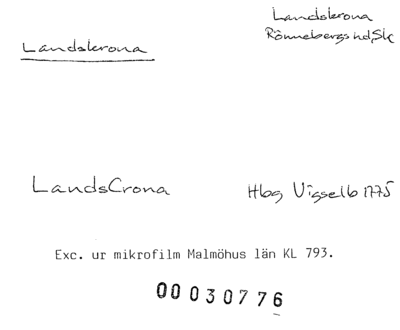 Landskrona
Landskrona
Rönnebergs hd, Sk
LandsCrona
Hbg Vigselb 1775
Exc. ur mikrofilm Malmöhus län KL 793.
00030776